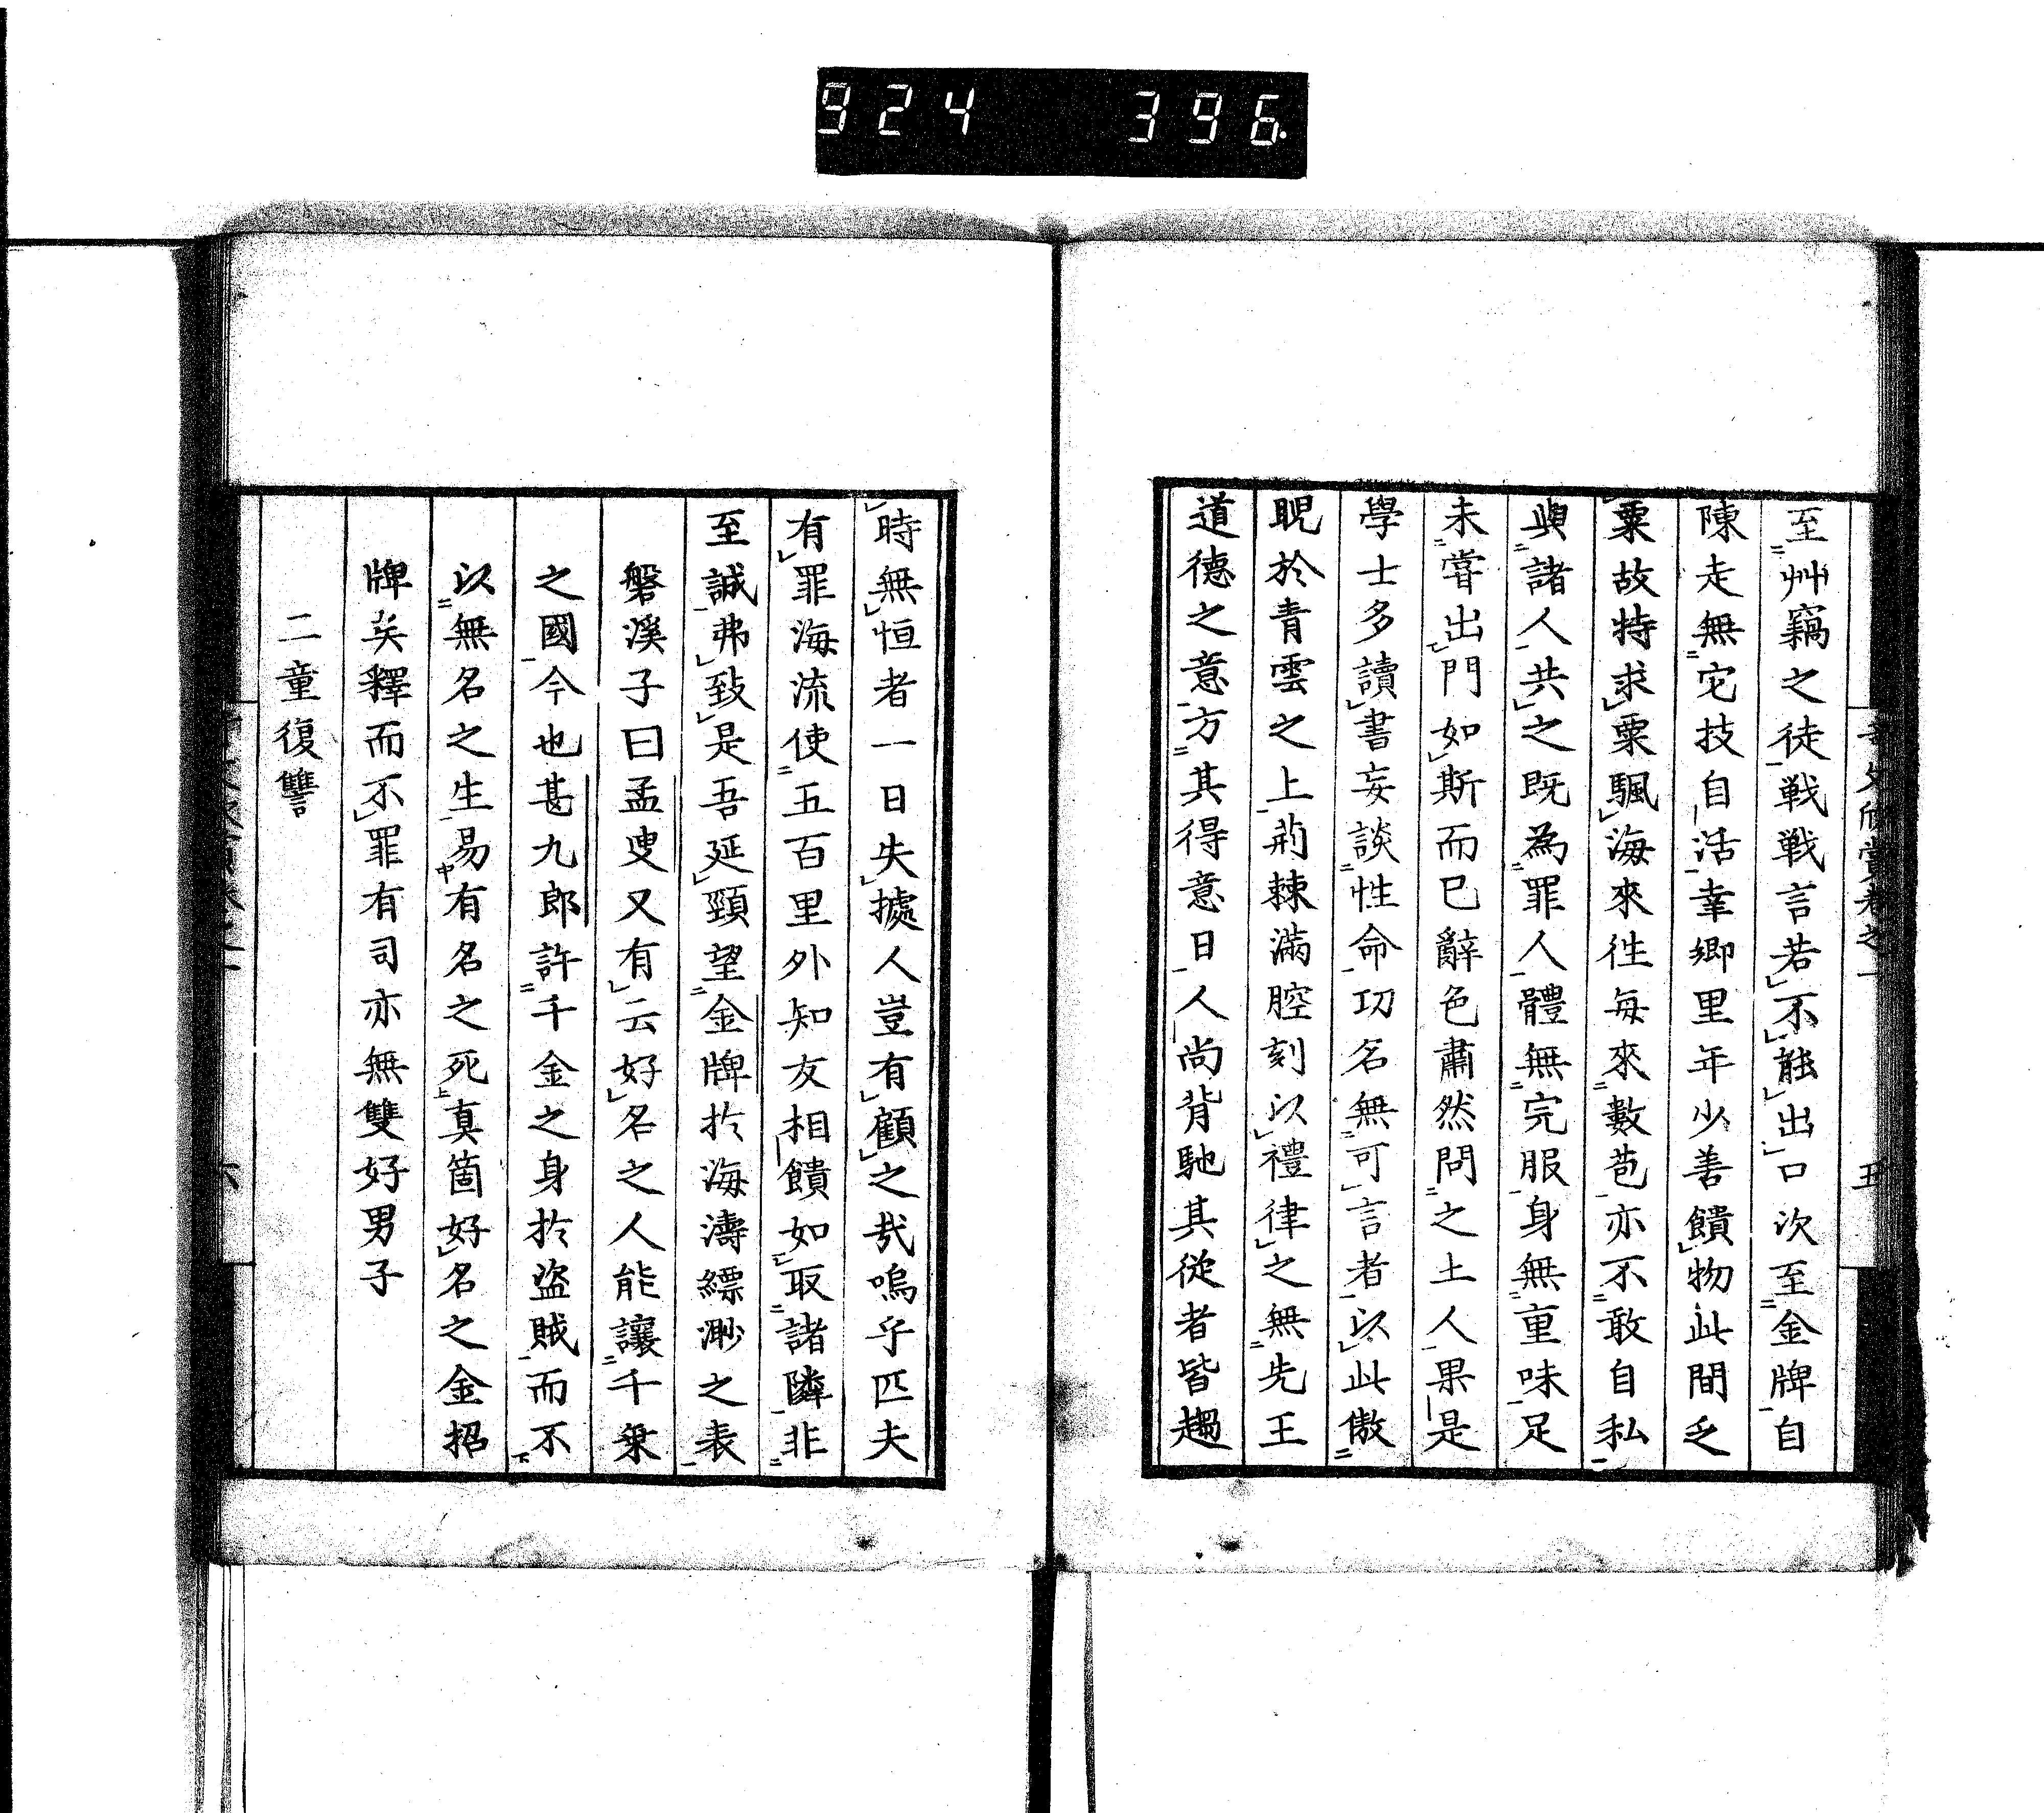 924 396
至艸竊之徒戰戰言若不能出口次至金牌自
陳走無它技自活幸鄉里年少善饋物此間乏
粟故特求粟颿海來往每來數苞亦不敢自私
與諸人共之既為罪人體無完服身無重味足
未甞出門如斯而已辭色肅然問之土人果是
學士多讀書妄談性命功名無可言者以此傲
睨於青雲之上荊棘滿腔刻以禮律之無先王
道德之意方其得意日人尚背馳其從者皆趨
時無恒者一日失據人豈有顧之哉嗚乎匹夫
有罪海流使五百里外知友相饋如取諸隣非
至誠弗致是吾延頸望金牌於海濤縹渺之表
磐溪子曰孟叟又有云好名之人能讓千乗
之國今也甚九郎許千金之身於盜賊而不
以無名之生易有名之死真箇好名之金招
牌矣釋而不罪有司亦無雙好男子
二童復讐